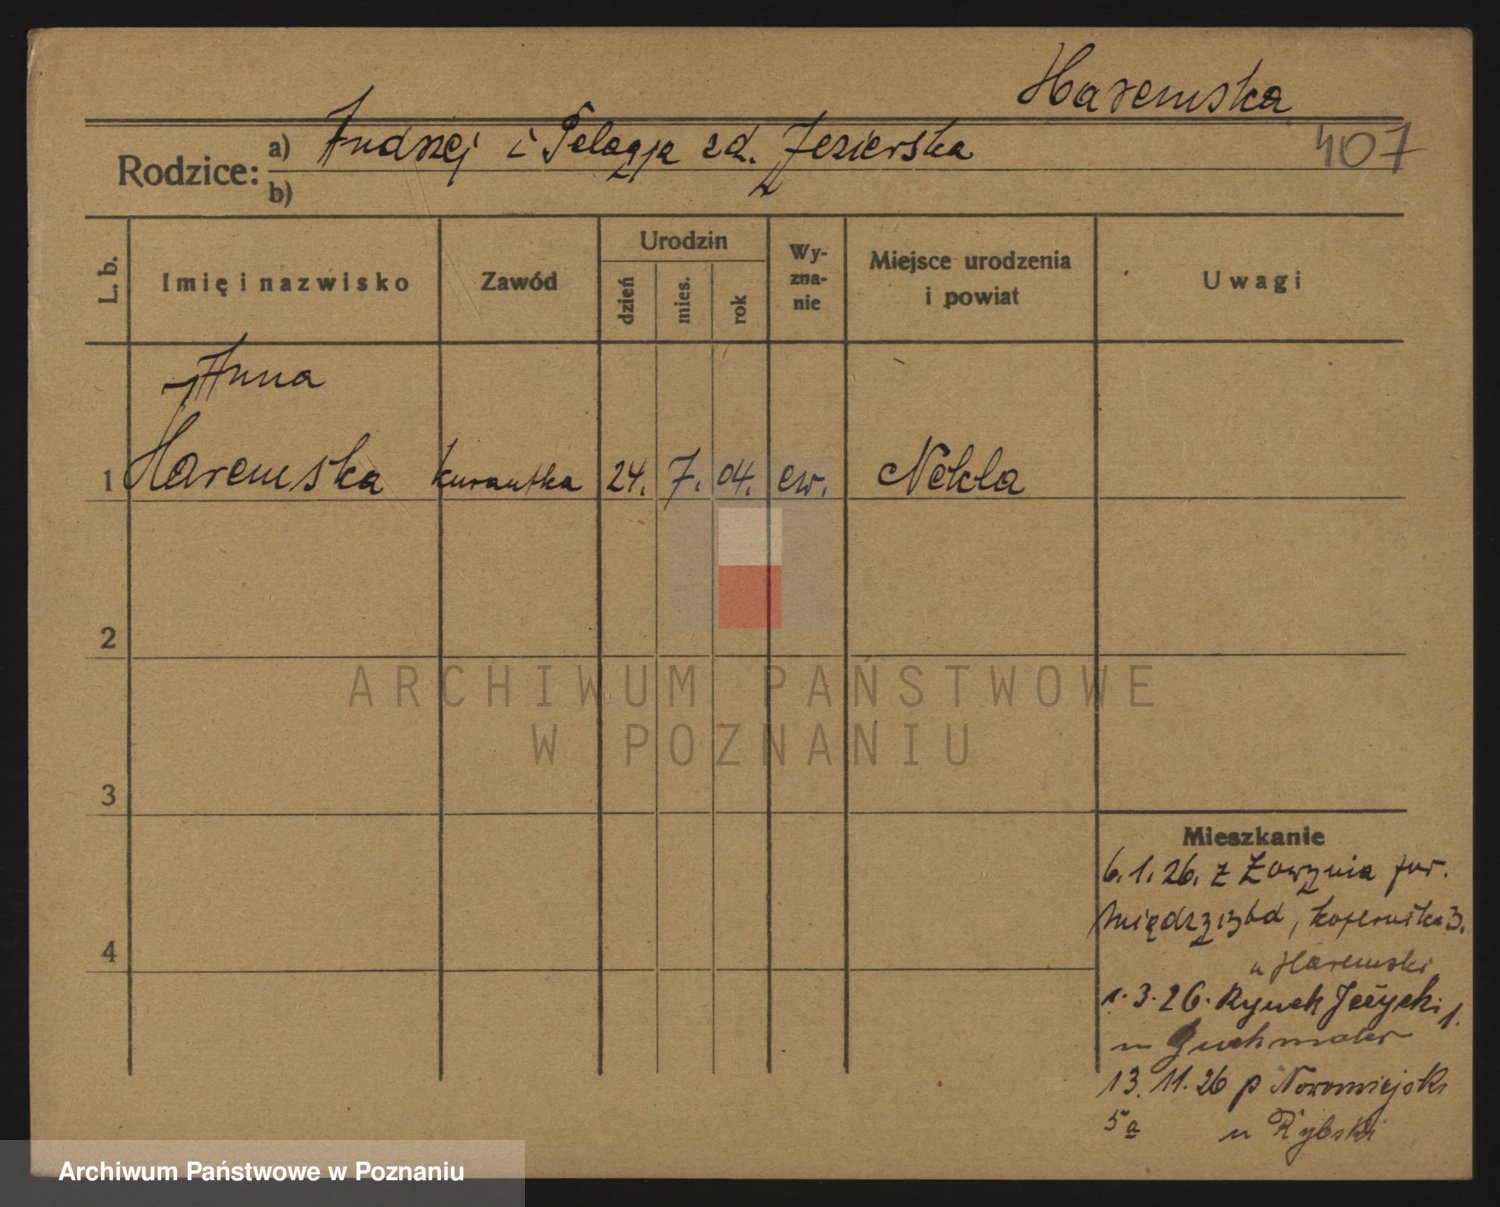 Haremska
407
Rodzice: a) Andrzej i Pelagja zd. Jezierska
b)
L. b.
Imię i nazwisko
Zawód
Urodzin
dzień
mies.
rok
Wy-
zna-
nie
Miejsce urodzenia
i powiat
Uwagi
Anna
1 Haremska kurantka 24. 7. 04. ew. Nekla
2
ARCHIWUM PAŃSTWOWE
W POZNANIU
3
4
Mieszkanie
6.1.26. z pow.
3.
u Haremski
1.3.26. Rynek Jeżycki 1.
13.11.26 p Nowomiejski
5a u Rybski
Archiwum Państwowe w Poznaniu